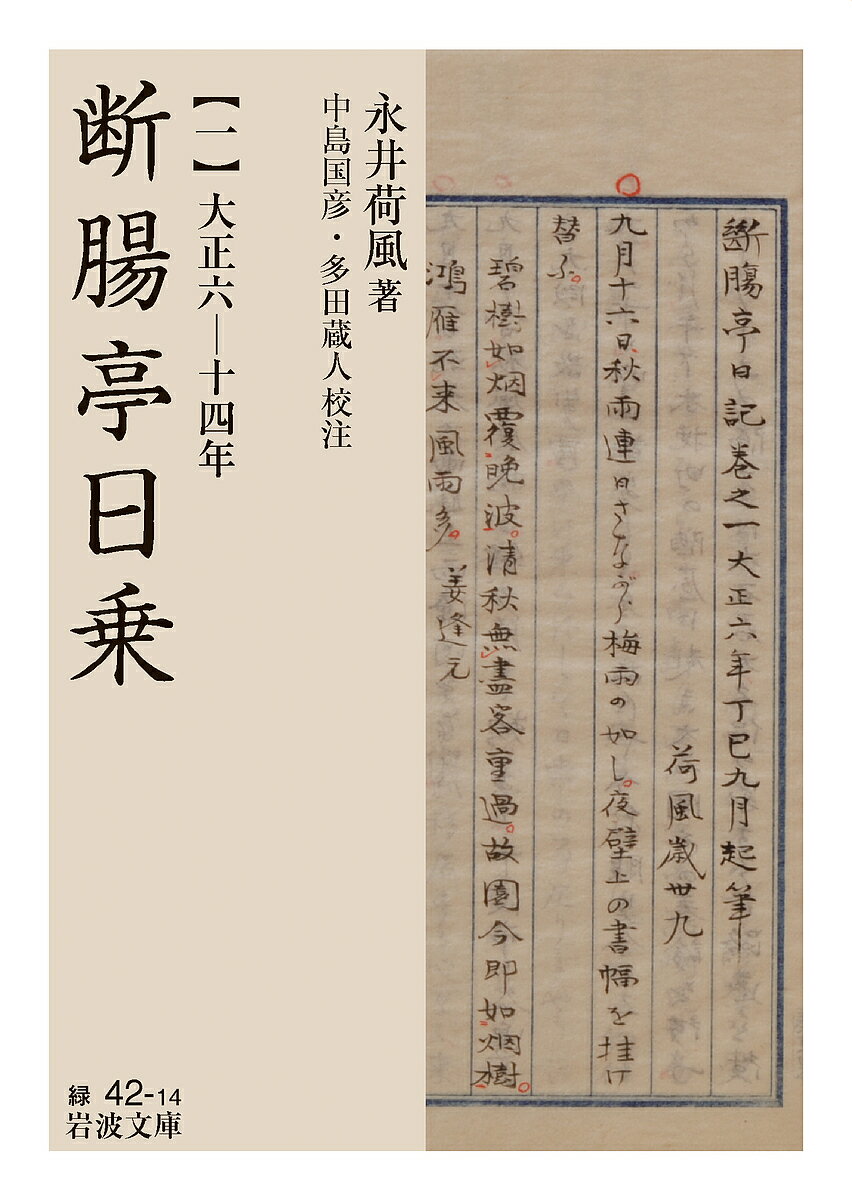 永井荷風 著
中島国彦・多田蔵人 校注
【一】大正六―十四年
断腸亭日乗
緑 42-14
岩波文庫
斷膓亭日記巻之一大正六年丁巳九月起筆
荷風歳卅九
九月十六日、秋雨連日さながら梅雨の如し。夜壁上の書幅を挂け
替ふ。
碧樹如烟覆晩波。清秋無盡客重過。故園今即如烟樹。
鴻雁不来風雨多。姜逢元